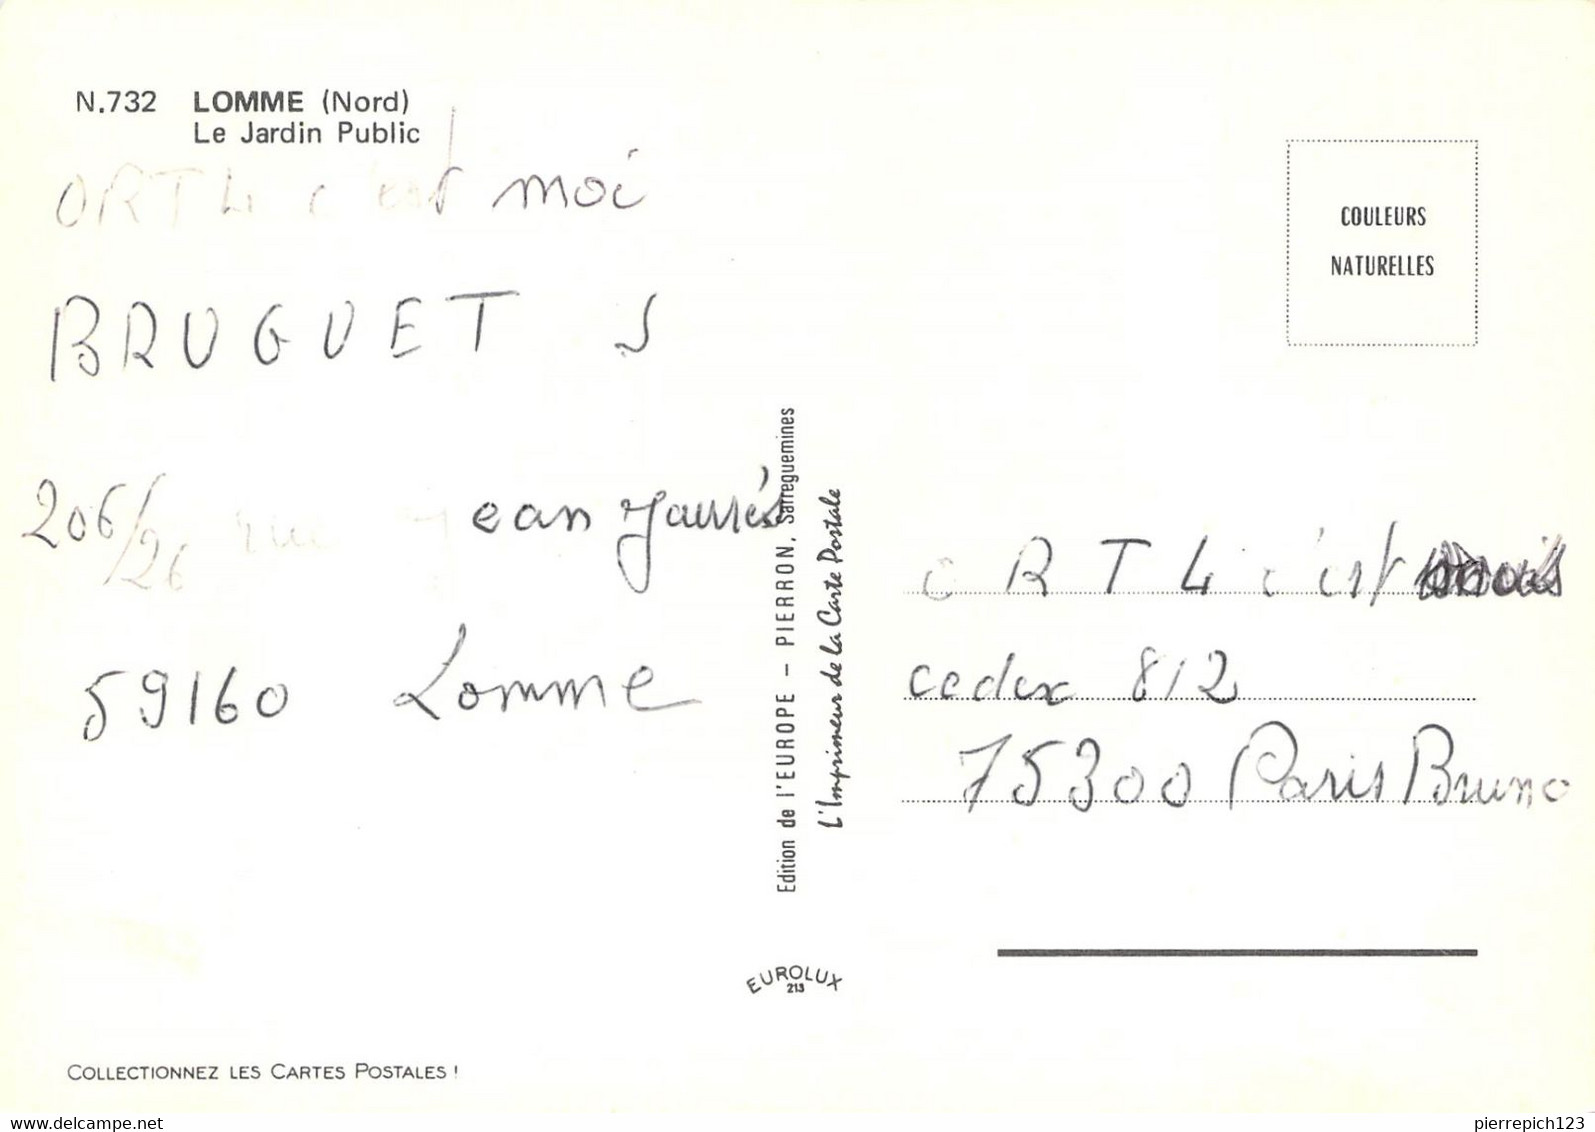 N.732 LOMME (Nord)
Le Jardin Public
ORTL c'est moi
BRUGUET J
206/26 rue Jean Jaurés
59160 Lomme
COLLECTIONNEZ LES CARTES POSTALES !
Edition de l'EUROPE - PIERRON, Sarreguemines
L'Imprimeur de la Carte Postale
EUROLUX
213
COULEURS
NATURELLES
ORTL c'est
cedex 812
75300 Paris Bruno
delcampe.net
pierrepich123